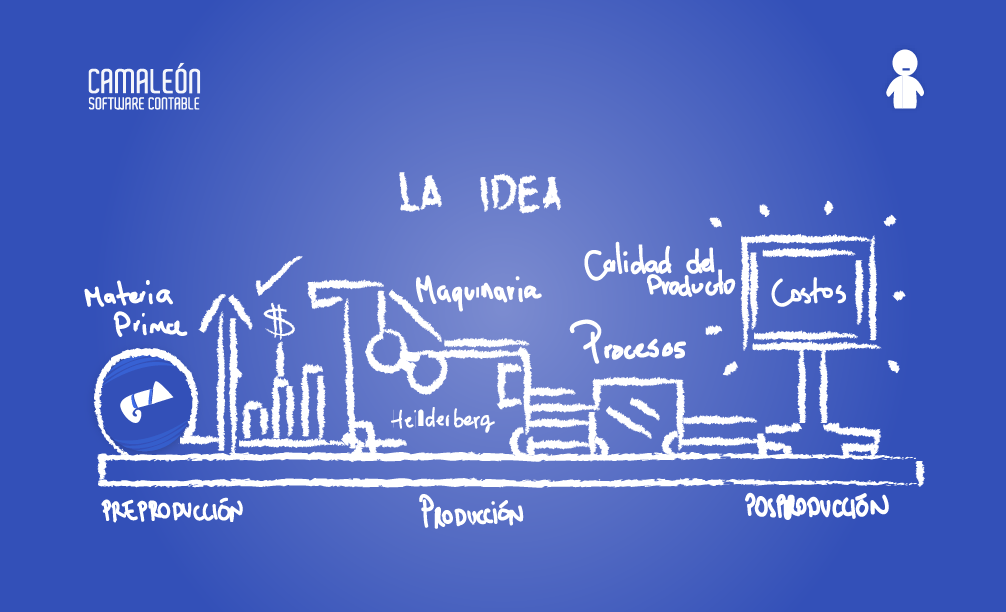 CAMALEÓN
SOFTWARE CONTABLE
LA IDEA
Materia
Prima
$
Maquinaria
Heilderberg
Calidad del
Producto
Procesos
Costos
PREPRODUCCIÓN
PRODUCCIÓN
POSPRODUCCIÓN